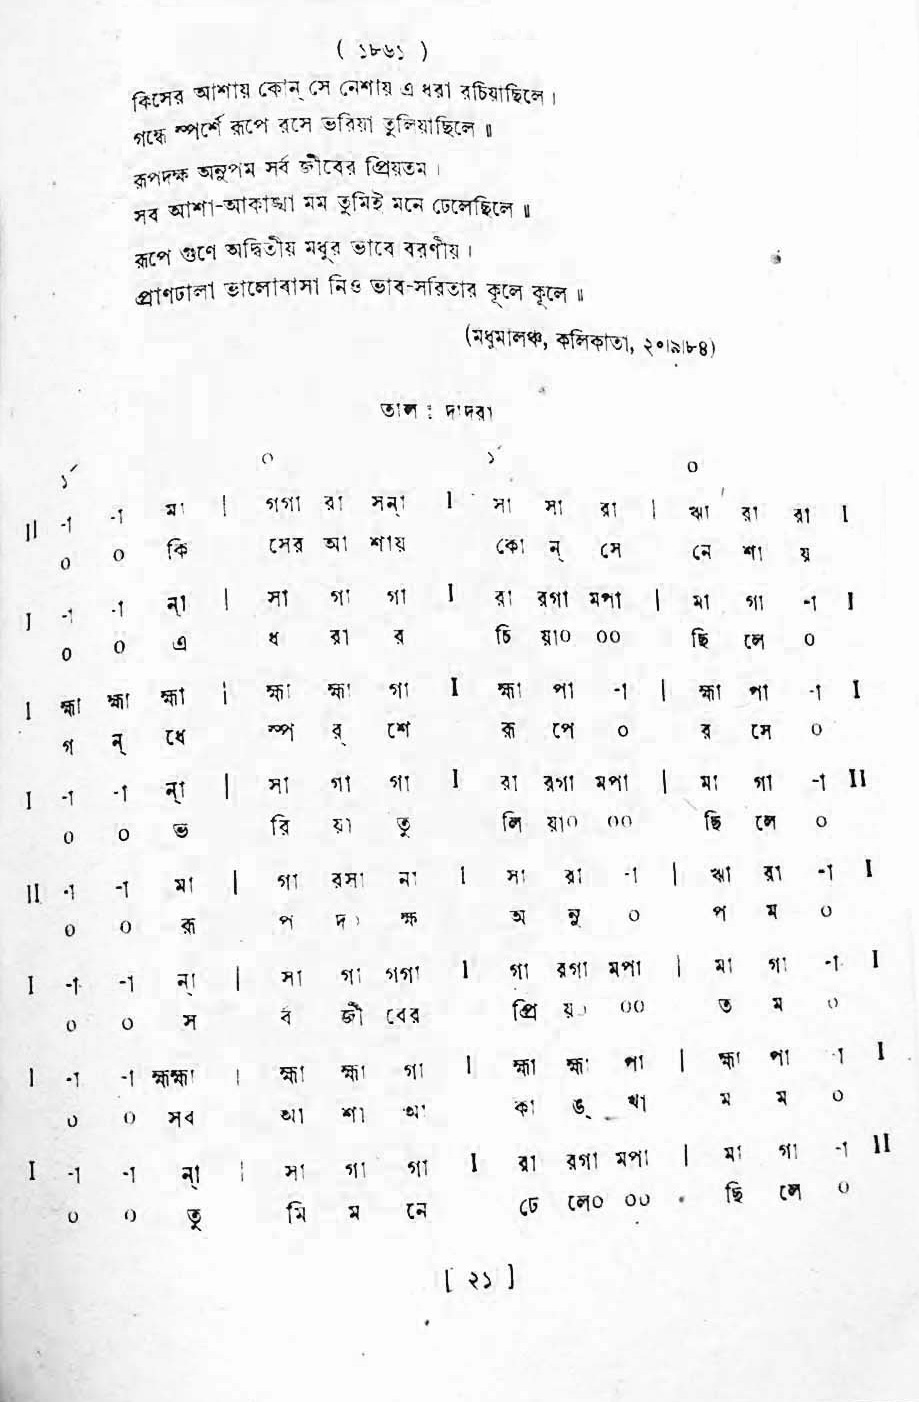 ( ১৮৬১ )
কিসের আশায় কোন্ সে নেশায় এ ধরা রচিয়াছিলে ।
গন্ধে স্পর্শে রূপে রসে ভরিয়া তুলিয়াছিলে ॥
রূপদক্ষ অনুপম সর্ব জীবের প্রিয়তম ।
সব আশা-আকাঙ্খা মম তুমিই মনে ঢেলেছিলে ॥
রূপে গুণে অদ্বিতীয় মধুর ভাবে বরণীয় ।
প্রাণঢালা ভালোবাসা নিও ভাব-সরিতার কূলে কূলে ॥
(মধুমালঞ্চ, কলিকাতা, ২০।৯।৮৪)
তাল : দাদরা
১´ ০ ১´ ০
II -া -া মা | গগা রা সন্া I সা সা রা | ঋা রা রা I
০ ০ কি সের আ শায় কো ন্ সে নে শা য়
I -া -া ন্া | সা গা গা I রা রগা মপা | মা গা -া I
০ ০ এ ধ রা র চি য়া০ ০০ ছি লে ০
I হ্মা হ্মা হ্মা | হ্মা হ্মা গা I হ্মা পা -া | হ্মা পা -া I
গ ন্ ধে স্প র্ শে রূ পে ০ র সে ০
I -া -া ন্া | সা গা গা I রা রগা মপা | মা গা -া II
০ ০ ভ রি য়া তু লি য়া০ ০০ ছি লে ০
II -া -া মা | গা রসা না I সা রা -া | ঋা রা -া I
০ ০ রূ প দ ০ ক্ষ অ নু ০ প ম ০
I -া -া ন্া | সা গা গগা I গা রগা মপা | মা গা -া I
০ ০ স র্ব জী বের প্রি য়০ ০০ ত ম ০
I -া -া হ্মহ্মা | হ্মা হ্মা গা I হ্মা হ্মা পা | হ্মা পা -া I
০ ০ সব আ শা আ কা ঙ্ খা ম ম ০
I -া -া ন্া | সা গা গা I রা রগা মপা | মা গা -া II
০ ০ তু মি ম নে ঢে লে০ ০০ ছি লে ০
[ ২১ ]